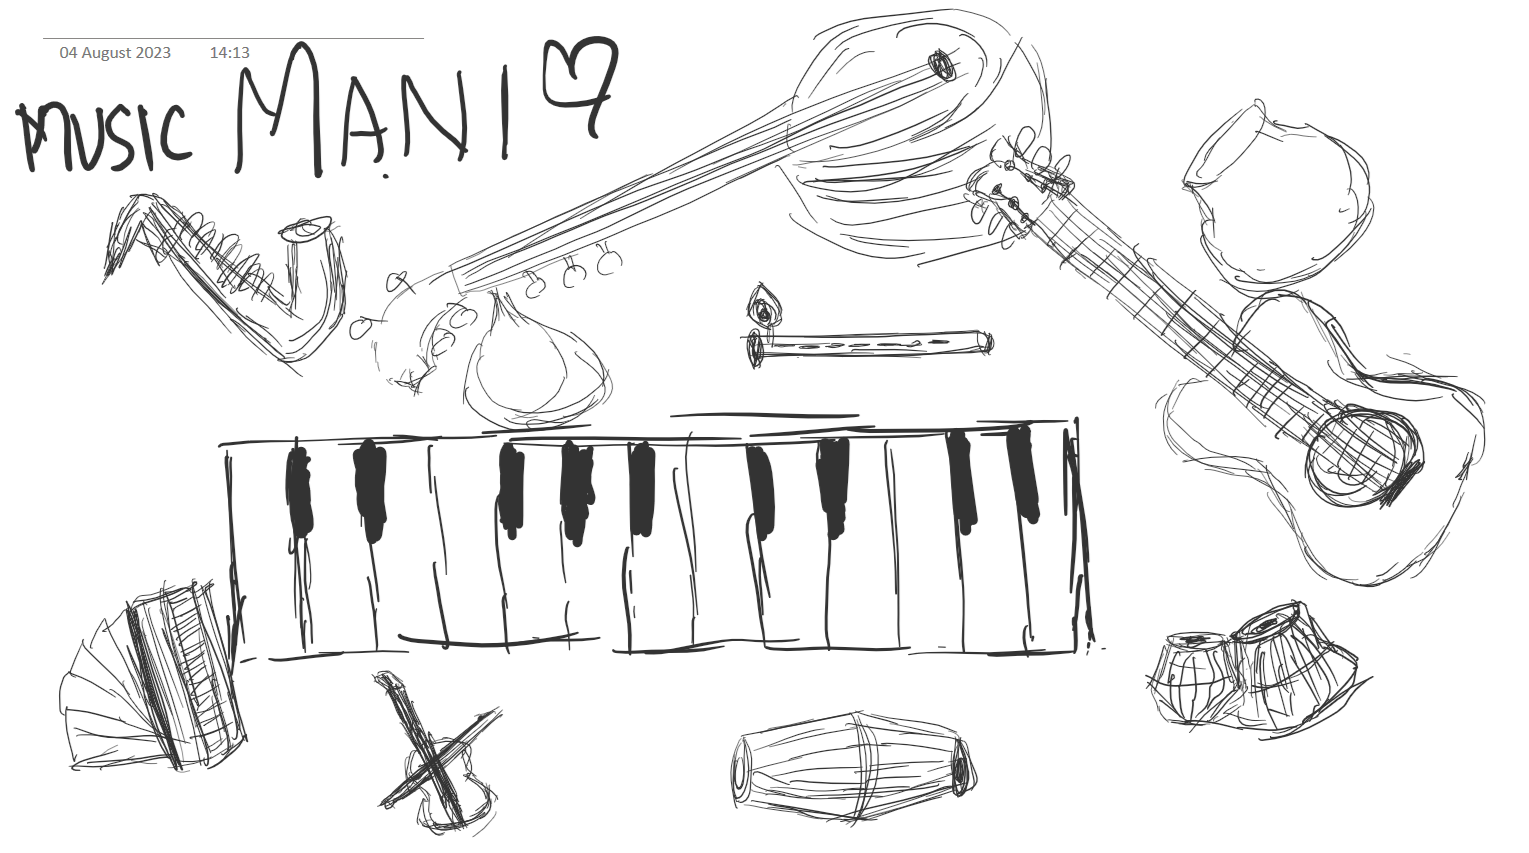 04 August 2023 14:13
MUSIC MANI